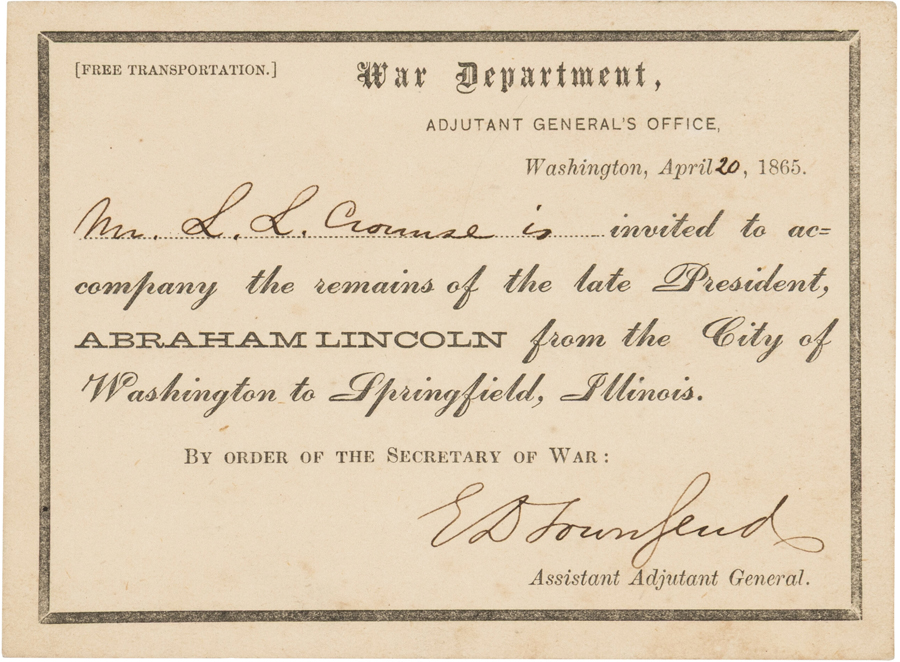 [FREE TRANSPORTATION.]
War Department,
ADJUTANT GENERAL'S OFFICE,
Washington, April 20, 1865.
Mr. L. L. Crounse is invited to ac=
company the remains of the late President,
ABRAHAM LINCOLN from the City of
Washington to Springfield, Illinois.
BY ORDER OF THE SECRETARY OF WAR:
E D Townsend
Assistant Adjutant General.